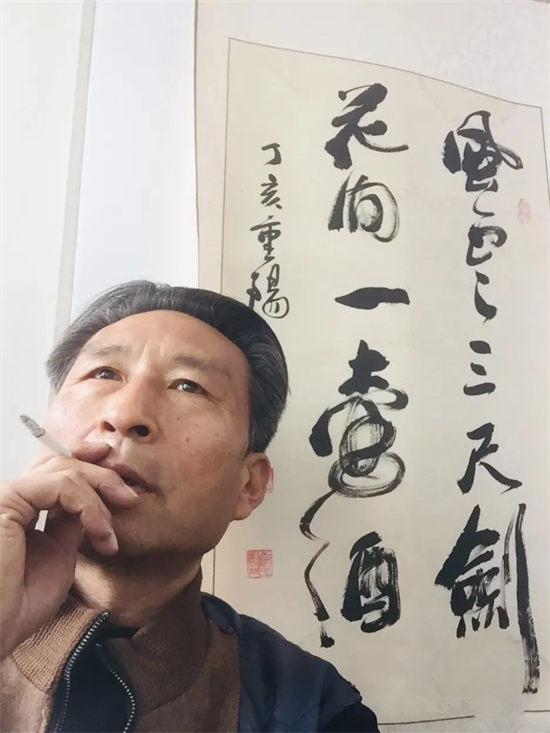 風雲三尺劍
花間一壺酒
丁亥重陽